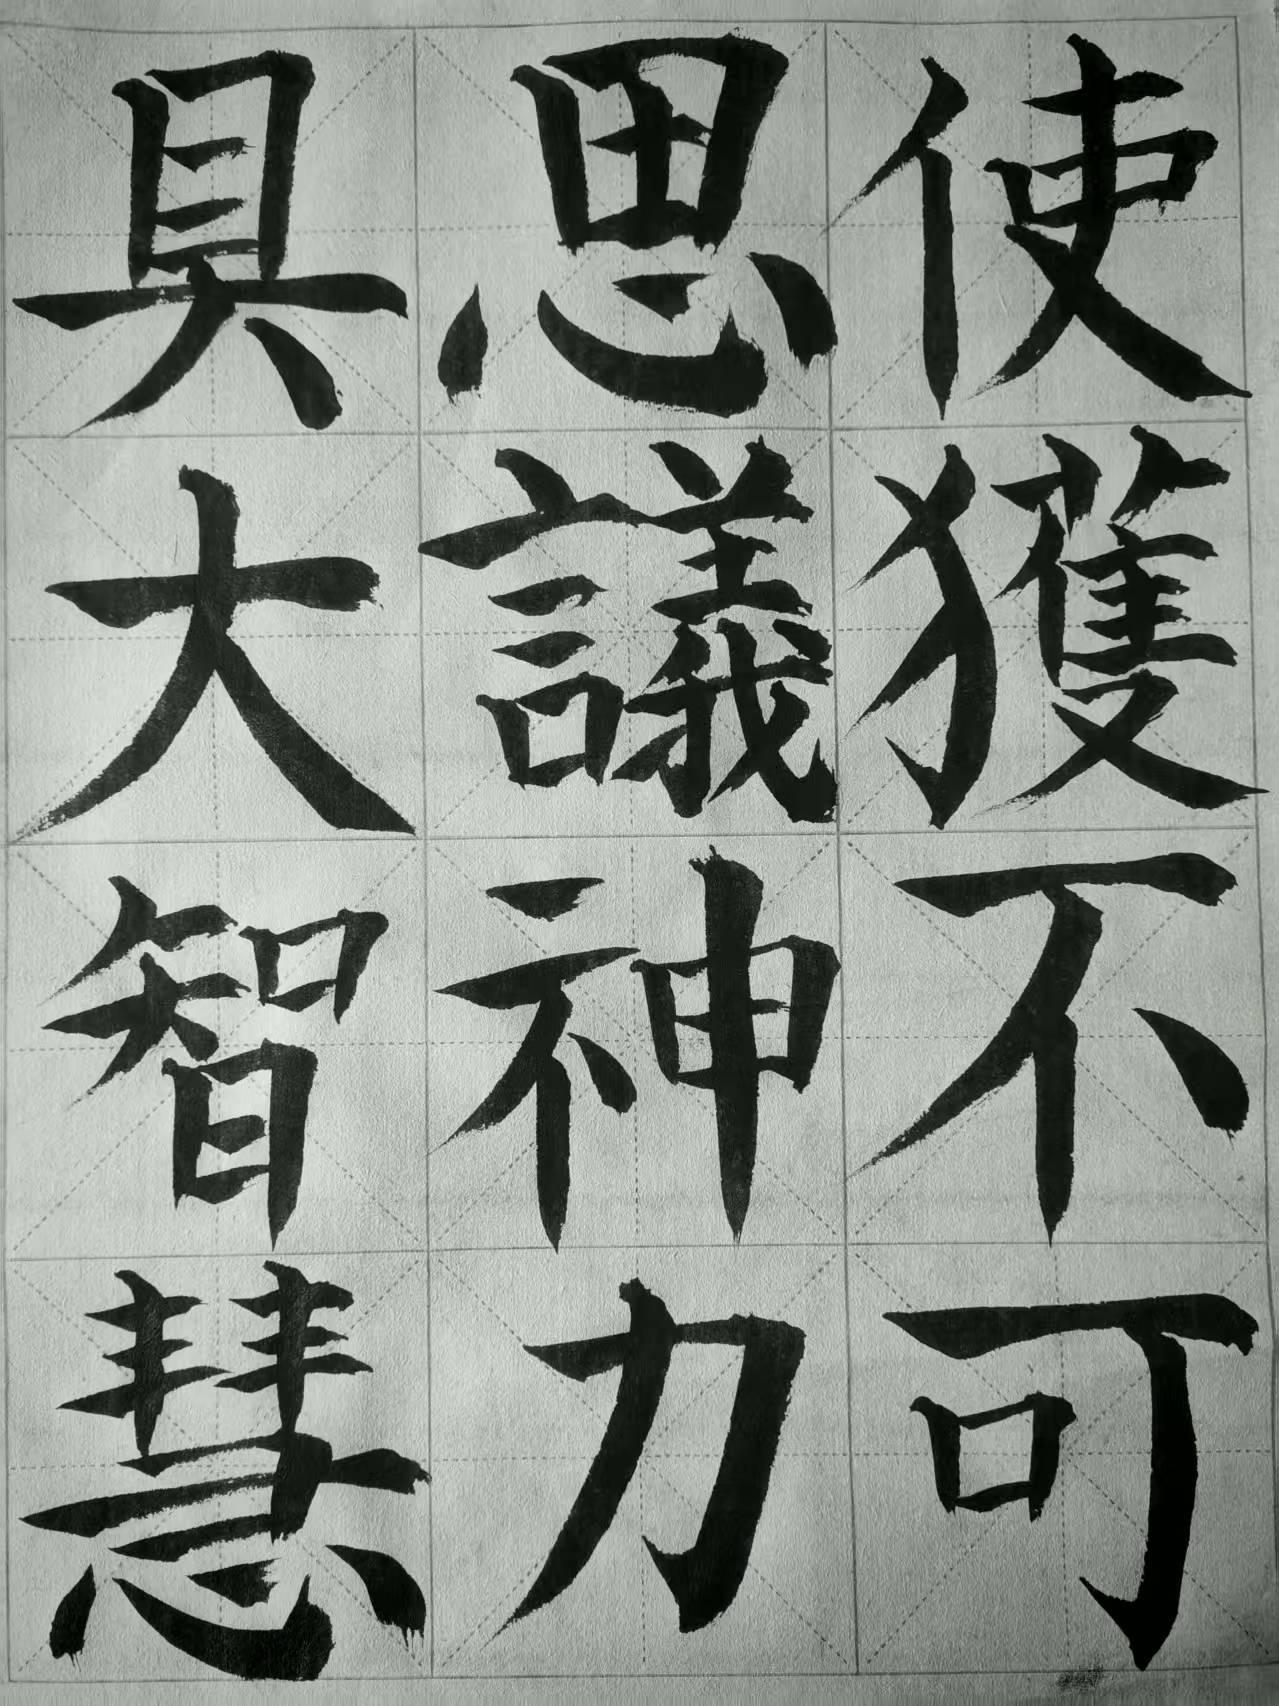 使獲不可
思議神力
具大智慧